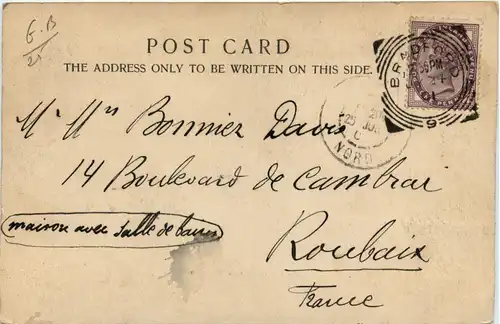 G.B
25
POST CARD
THE ADDRESS ONLY TO BE WRITTEN ON THIS SIDE.
BRADFORD
9
NORD
Bonnier Davis
14 Boulevard de Cambrai
maison avec salle de bains
Roubaix
France